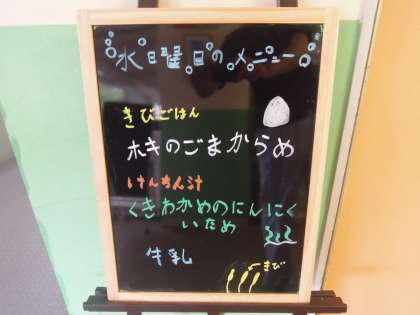 水曜日のメニュー
きびごはん
ホキのごまからめ
けんちん汁
くきわかめのにんにく
いため
牛乳
きび